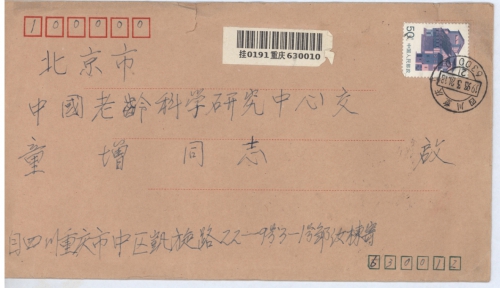 100000
挂0191重庆630010
50分
中国人民邮政
北京市
中國老龄科学研究中心交
童增同志 啟
自四川重庆市中区凱旋路22—9号3—1号郭汝棟寄
630012